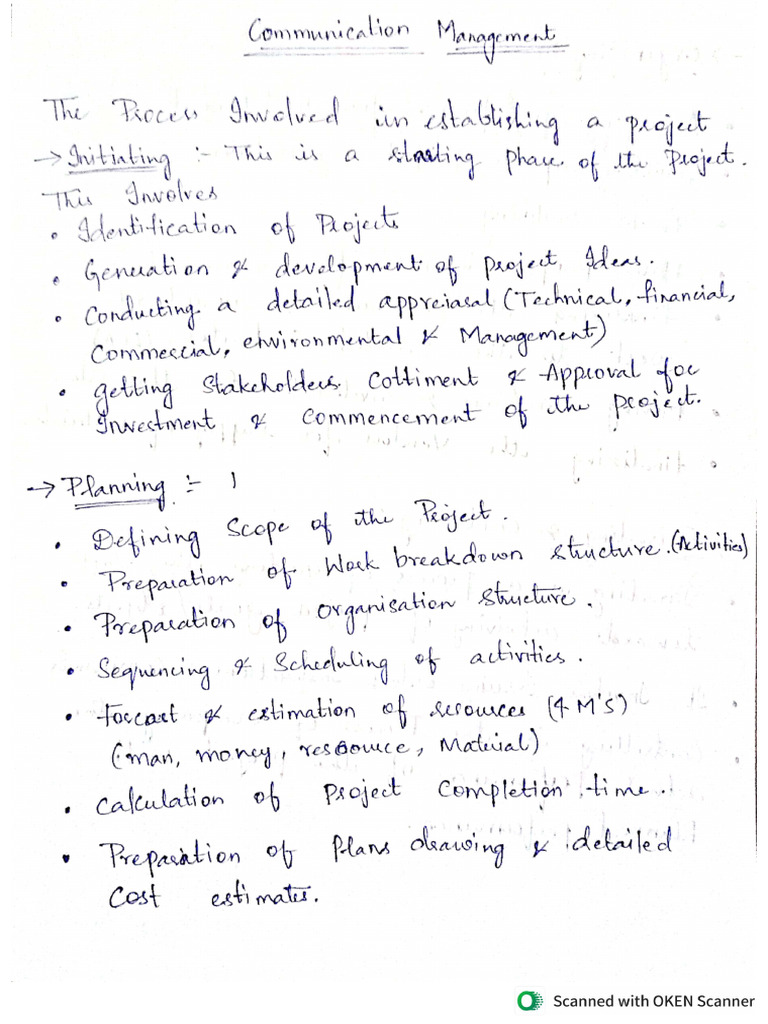 Communication Management
The Process Involved in establishing a project
→ Initiating :- This is a starting phase of the Project.
This Involves
• Identification of Projects
• Generation & development of project Ideas.
• Conducting a detailed appreiasal (Technical, financial,
Commercial, environmental & Management)
• getting Stakeholders Cottiment & Approval for
Investment & Commencement of the project.
→ Planning :- 1
• Defining Scope of the Project.
• Preparation of Work breakdown structure. (Activities)
• Preparation of Organisation Structure.
• Sequencing & Scheduling of activities.
• Forcast & estimation of resources (4 M's)
(man, money, resource, Material)
• Calculation of Project Completion time.
• Preparation of Plans drawing & detailed
Cost estimates.
Scanned with OKEN Scanner